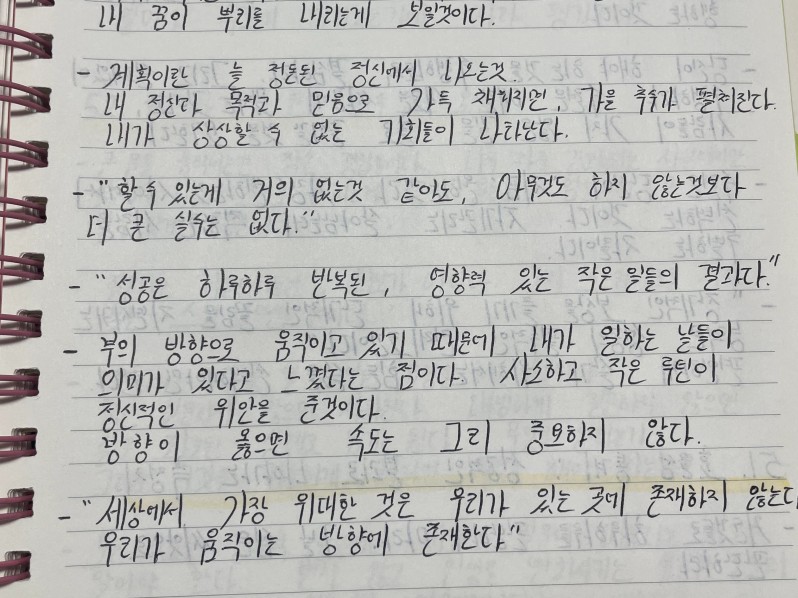 내 꿈이 뿌리를 내리는게 보일것이다.
- 계획이란 늘 정돈된 정신에서 나오는것.
내 정신다 목적과 믿음으로 가득 채워지면, 가을 추수가 펼쳐진다.
내가 상상할 수 없는 기회들이 나타난다.
- "할 수 있는게 거의 없는것 같아도, 아무것도 하지 않는것보다
더 큰 실수는 없다."
- "성공은 하루하루 반복된, 영향력 있는 작은 일들의 결과다."
- 부의 방향으로 움직이고 있기 때문에 내가 일하는 날들이
의미가 있다고 느꼈다는 점이다. 사소하고 작은 루틴이
정신적인 위안을 준것이다.
방향이 옳으면 속도는 그리 중요하지 않다.
- "세상에서 가장 위대한 것은 우리가 있는 곳에 존재하지 않는다
우리가 움직이는 방향에 존재한다"